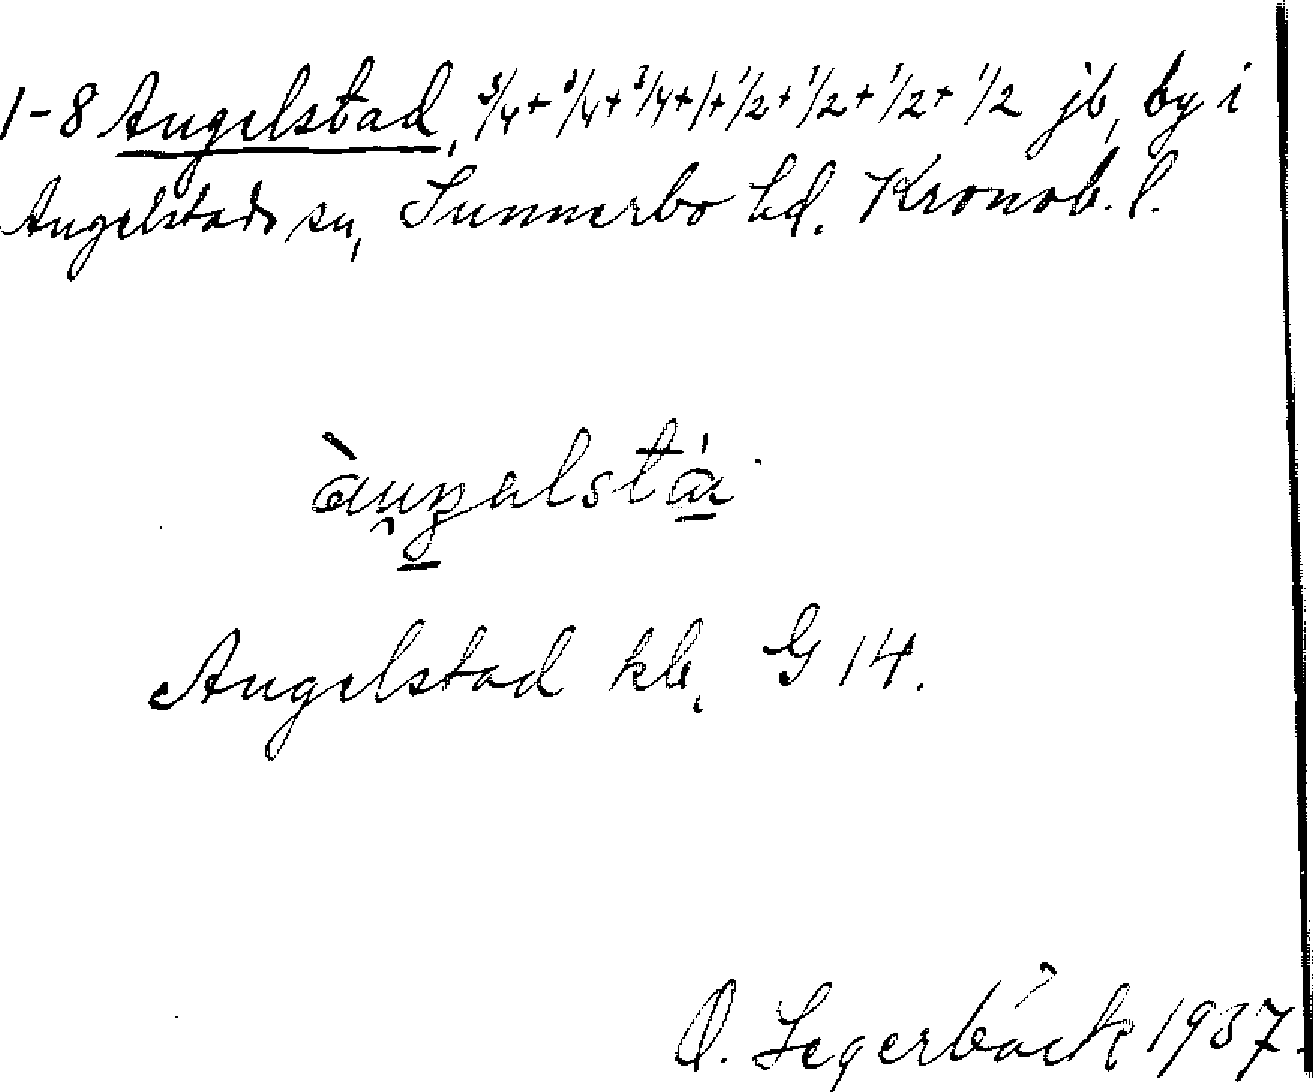 1-8 Angelstad, 3/4+3/4+3/4+1+1/2+1/2+1/2+1/2 jb, by i
Angelstads sn, Sunnerbo hd. Kronob. l.
Angelstad kb, G 14.
O. Segerbäck 1937.